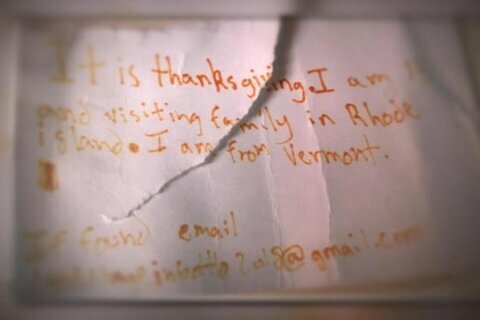 It is thanksgiving. I am
and visiting family in Rhode
island. I am from Vermont.
If found email
2018@gmail.com